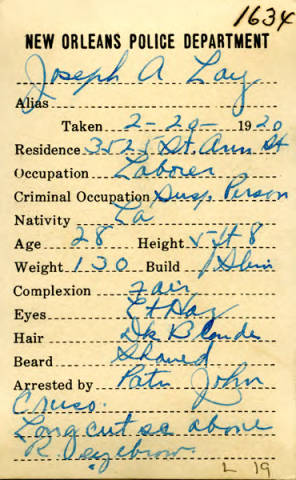 1634
NEW ORLEANS POLICE DEPARTMENT
Joseph A Lay
Alias
Taken 2-20- 1920
Residence 3525 St. Ann St
Occupation Laborer
Criminal Occupation Susp. Person
Nativity La
Age 28 Height 5 ft 8
Weight 130 Build Slim
Complexion Fair
Eyes Lt Haz
Hair Dk Blonde
Beard Shaved
Arrested by Patr John
Cruso.
Long cut sc above
R eyebrow.
L 19